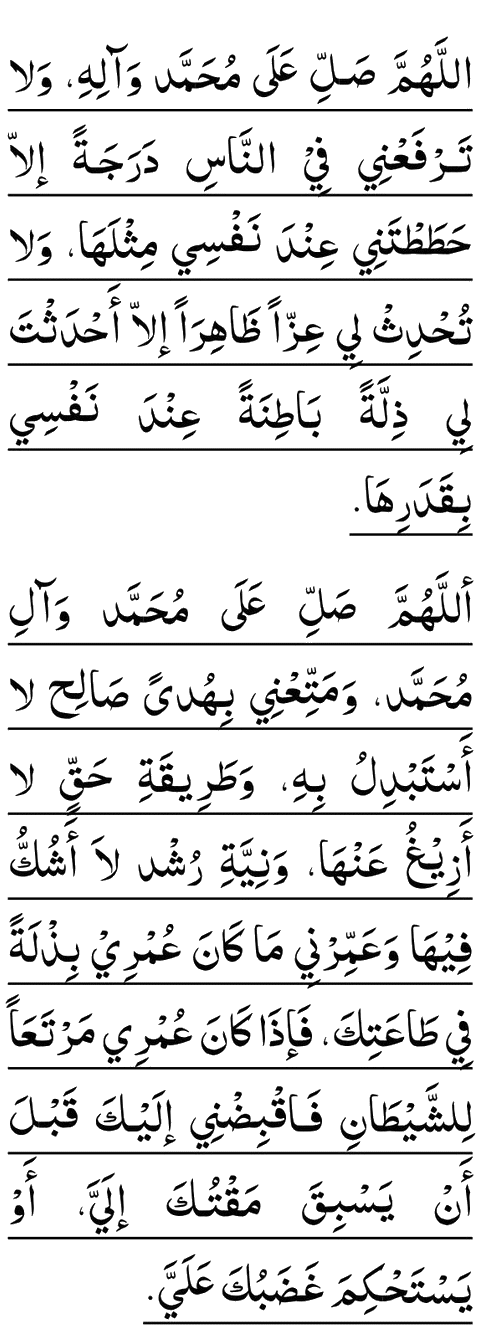 اللَّهُمَّ صَلِّ عَلَى مُحَمَّد وَآلِهِ، وَلا
تَرْفَعْنِي فِيْ النَّاسِ دَرَجَةً إلاّ
حَطَطْتَنِي عِنْدَ نَفْسِي مِثْلَهَا، وَلا
تُحْدِثْ لِي عِزّاً ظَاهِرَاً إلاّ أَحْدَثْتَ
لِي ذِلَّةً بَاطِنَةً عِنْدَ نَفْسِي
بِقَدَرِهَا.
أللَّهُمَّ صَلِّ عَلَى مُحَمَّد وَآلِ
مُحَمَّد، وَمَتِّعْنِي بِهُدىً صَالِح لا
أَسْتَبْدِلُ بِهِ، وَطَرِيقَةِ حَقٍّ لا
أَزِيْغُ عَنْهَا، وَنِيَّةِ رُشْد لاَ أَشُكُّ
فِيْهَا وَعَمِّرْنِي مَا كَانَ عُمْرِيْ بِذْلَةً
فِي طَاعَتِكَ، فَإذَا كَانَ عُمْرِي مَرْتَعَاً
لِلشَّيْطَانِ فَاقْبِضْنِي إلَيْكَ قَبْلَ
أَنْ يَسْبِقَ مَقْتُكَ إلَيَّ، أَوْ
يَسْتَحْكِمَ غَضَبُكَ عَلَيَّ.